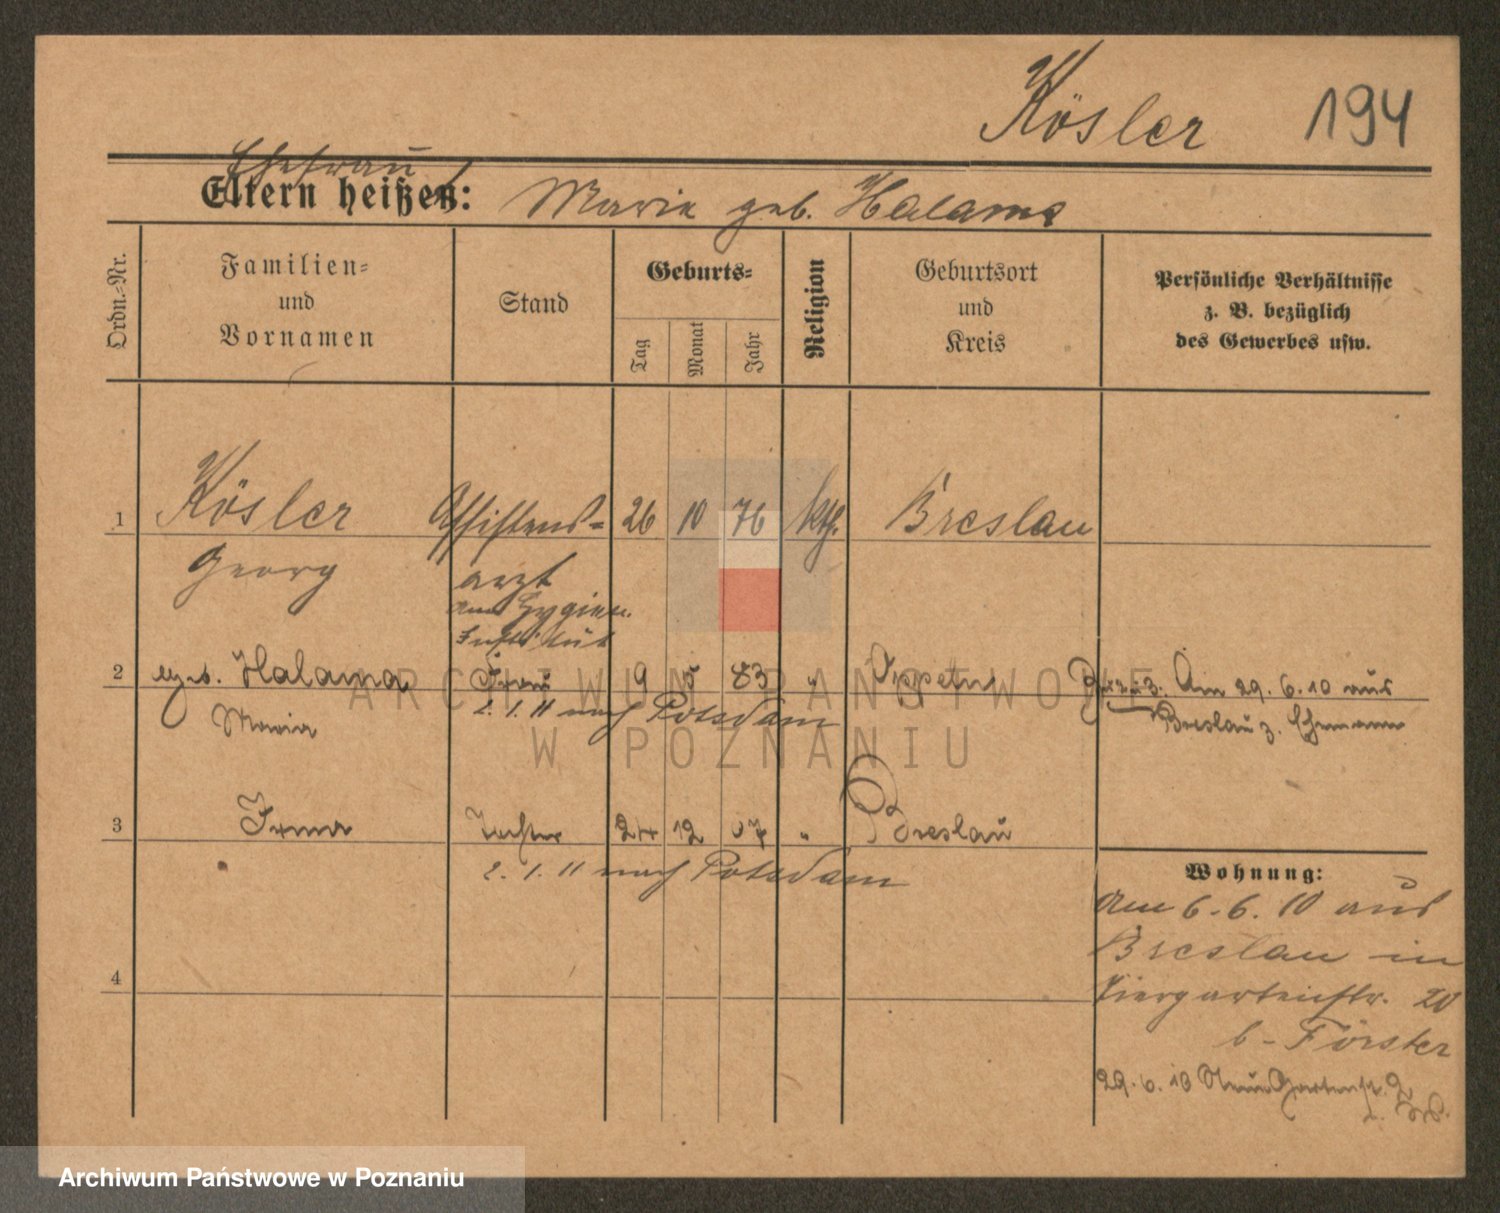 Kösler 194
Ehefrau
Eltern heißen: Maria geb. Halama
Ordn.-Nr.
Familien-
und
Vornamen
Stand
Geburts-
Tag
Monat
Jahr
Religion
Geburtsort
und
Kreis
Persönliche Verhältnisse
z. B. bezüglich
des Gewerbes usw.
1 Kösler Assistens- 26 10 76 kth. Breslau
Georg arzt
am Hygien.
Institut
2 geb. Halama Frau 9 5 83 " Am 29. 6. 10 aus
Maria 2. 1. 11 nach Potsdam Breslau z. Ehemann
3 Irma Tochter 24 12 07 " Breslau
2. 1. 11 nach Potsdam
Wohnung:
am 6. 6. 10 aus
Breslau in
Tiergartenstr. 20
b- Förster
4
29. 6. 10 Neue Gartenstr.
ARCHIWUM PAŃSTWOWE
W POZNANIU
Archiwum Państwowe w Poznaniu